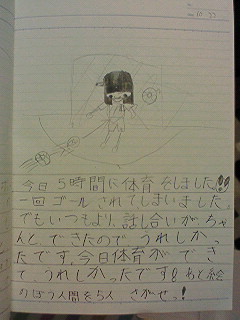 今日5時間に体育をしました!!
一回ゴールされてしまいました。
でもいつもより、話し合いが、ちゃ
んと、できたので うれしかっ
たです。今日体育ができ
て うれしかったです!! あと絵
のぼう人間を5人 さがせっ!